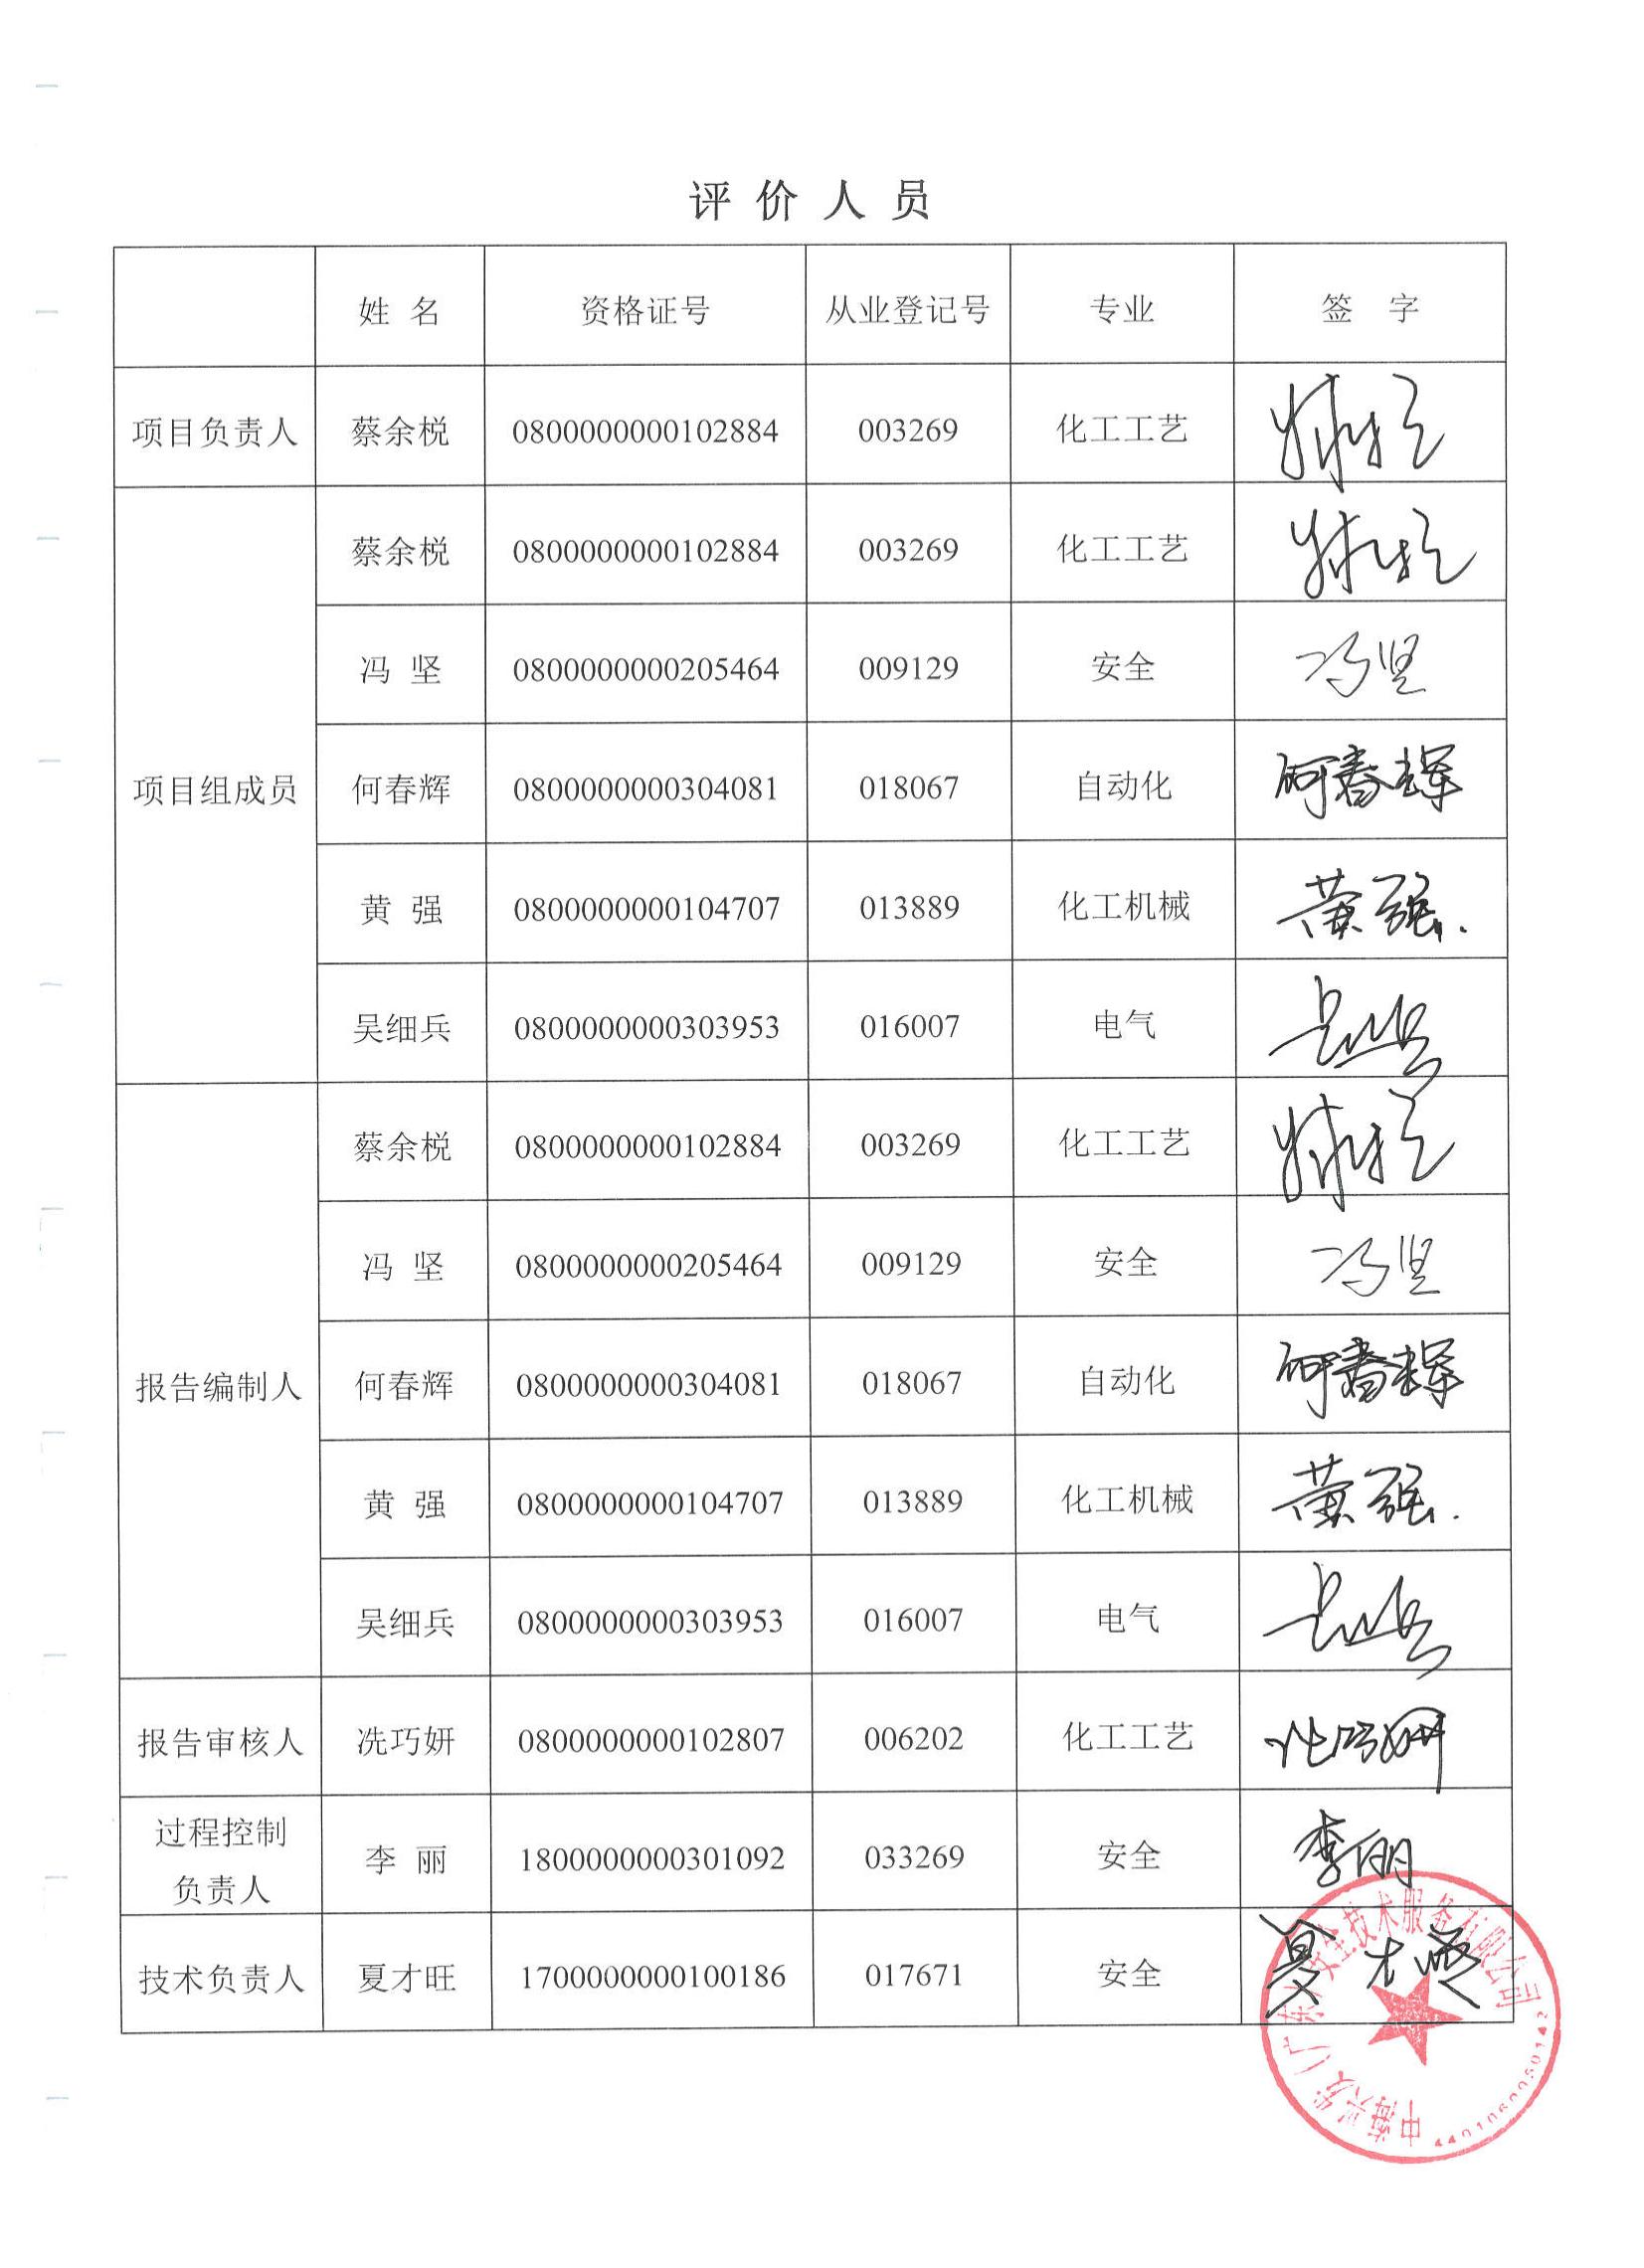 评价人员
姓 名 资格证号 从业登记号 专业 签 字
项目负责人 蔡余棁 0800000000102884 003269 化工工艺
项目组成员 蔡余棁 0800000000102884 003269 化工工艺
冯 坚 0800000000205464 009129 安全 冯坚
何春辉 0800000000304081 018067 自动化 何春辉
黄 强 0800000000104707 013889 化工机械 黄强
吴细兵 0800000000303953 016007 电气
报告编制人 蔡余棁 0800000000102884 003269 化工工艺
冯 坚 0800000000205464 009129 安全 冯坚
何春辉 0800000000304081 018067 自动化 何春辉
黄 强 0800000000104707 013889 化工机械 黄强
吴细兵 0800000000303953 016007 电气
报告审核人 冼巧妍 0800000000102807 006202 化工工艺
过程控制
负责人 李 丽 1800000000301092 033269 安全 李丽
技术负责人 夏才旺 1700000000100186 017671 安全 夏才旺